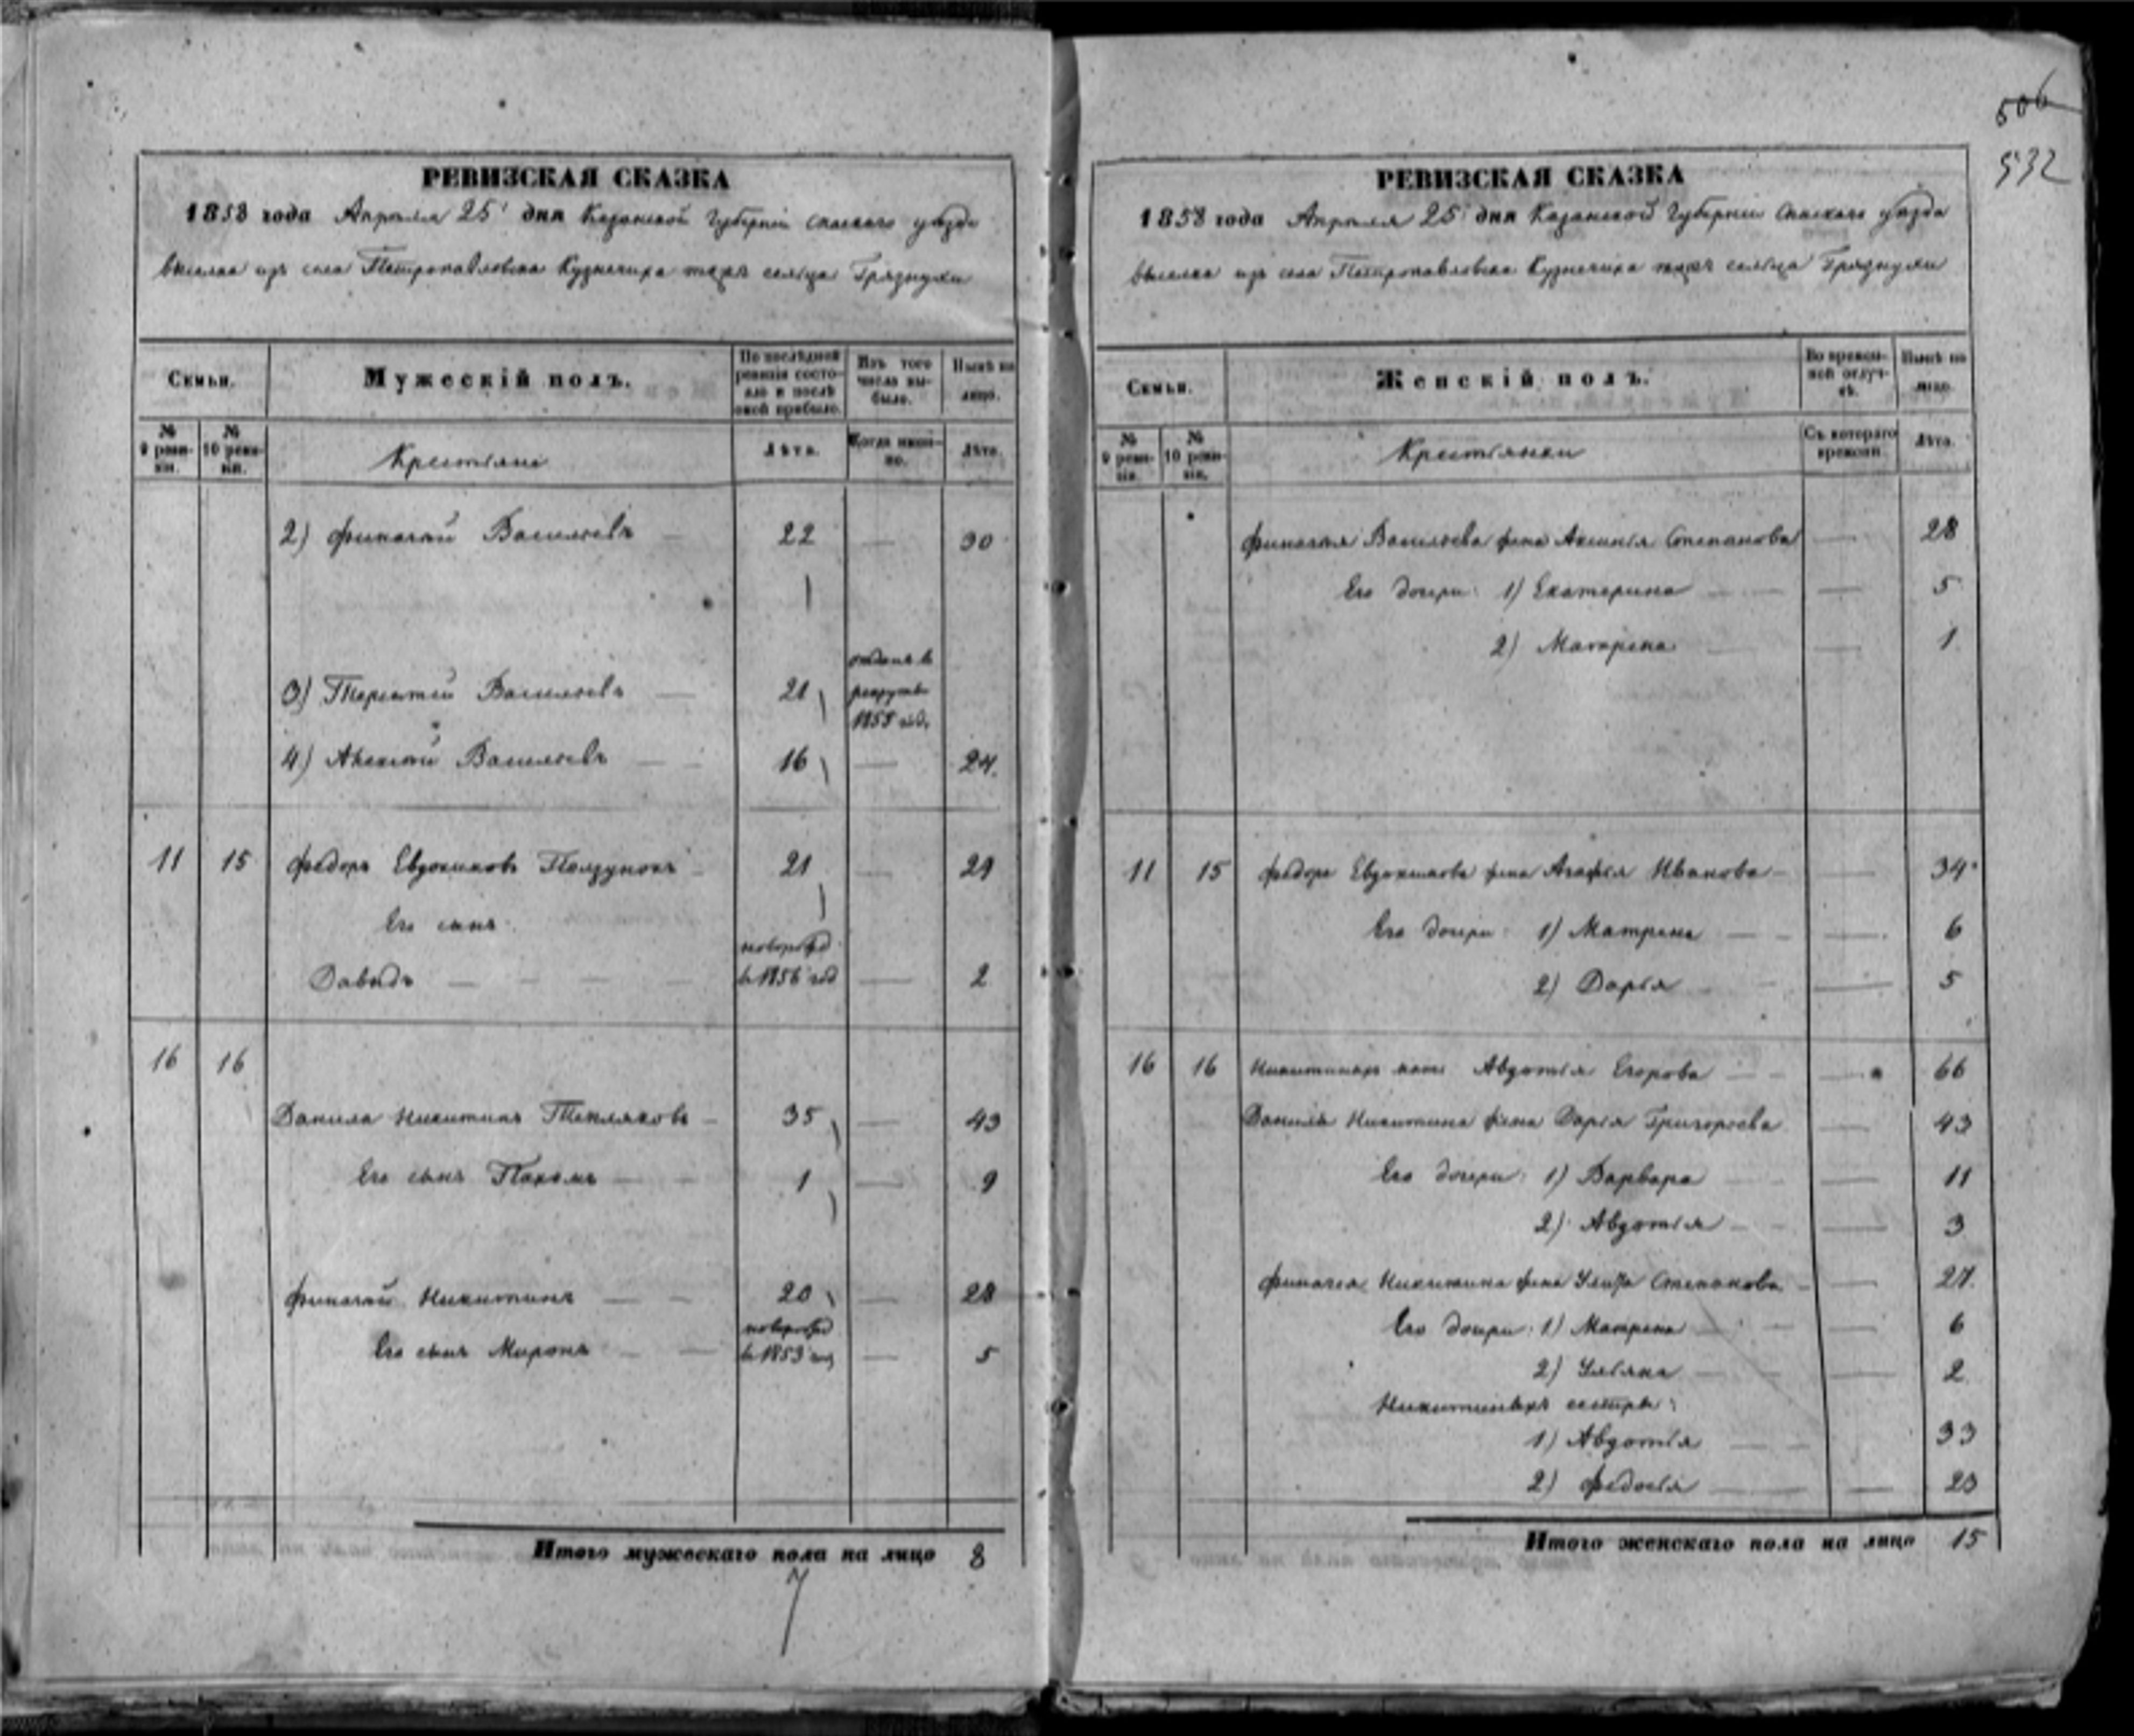 РЕВИЗСКАЯ СКАЗКА
1858 года Апреля 25 дня Казанской Губернии Спаскаго уезда
выселка изъ села Петропавловска Кузнечиха тожъ сельца Грязнухи
Семьи.
Мужескій полъ.
По послѣдней ревизіи состояло и послѣ оной прибыло.
Изъ того числа выбыло.
Нынѣ на лицо.
№ 9 ревизіи.
№ 10 ревизіи.
Крестьяне
Лѣта.
Когда именно.
Лѣта.
2) Филипъ Васильевъ 22 — 30
3) Терентій Васильевъ 21 отданъ в рекруты 1855 год.
4) Алексѣй Васильевъ 16 — 24.
11 15 Федоръ Евдокимовъ Ползуновъ 21 — 29
Его сынъ
Давыдъ новорожд в 1856 год — 2
16 16
Данила Никитинъ Тепляковъ 35 — 43
Его сынъ Пахомъ 1 — 9
Никитинъ 20 — 28
Его сынъ Миронъ новорожд в 1853 год — 5
Итого мужескаго пола на лицо 8
7
506
532
РЕВИЗСКАЯ СКАЗКА
1858 года Апреля 25 дня Казанской Губернии Спаскаго уезда
выселка изъ села Петропавловска Кузнечиха тожъ сельца Грязнухи
Семьи.
Женскій полъ.
Во временной отлучкѣ.
Нынѣ на лицо.
№ 9 ревизіи.
№ 10 ревизіи.
Крестьянки
Съ котораго времени.
Лѣта.
Васильева жена Аксинья Степанова — 28
Его дочери: 1) Екатерина — 5
2) Матрена — 1
11 15 Федора Евдокимова жена Агафья Иванова — 34
Его дочери: 1) Матрена — 6
2) Дарья — 5
16 16 Никитиныхъ мать Авдотья Егорова — 66
Данилы Никитина жена Дарья Григорьева — 43
Его дочери: 1) Варвара — 11
2) Авдотья — 3
Никитина жена Степанова — 27.
Его дочери: 1) Матрена — 6
2) Ульяна — 2
Никитиныхъ сестры:
1) Авдотья — 33
2) Федосья — 23
Итого женскаго пола на лицо 15